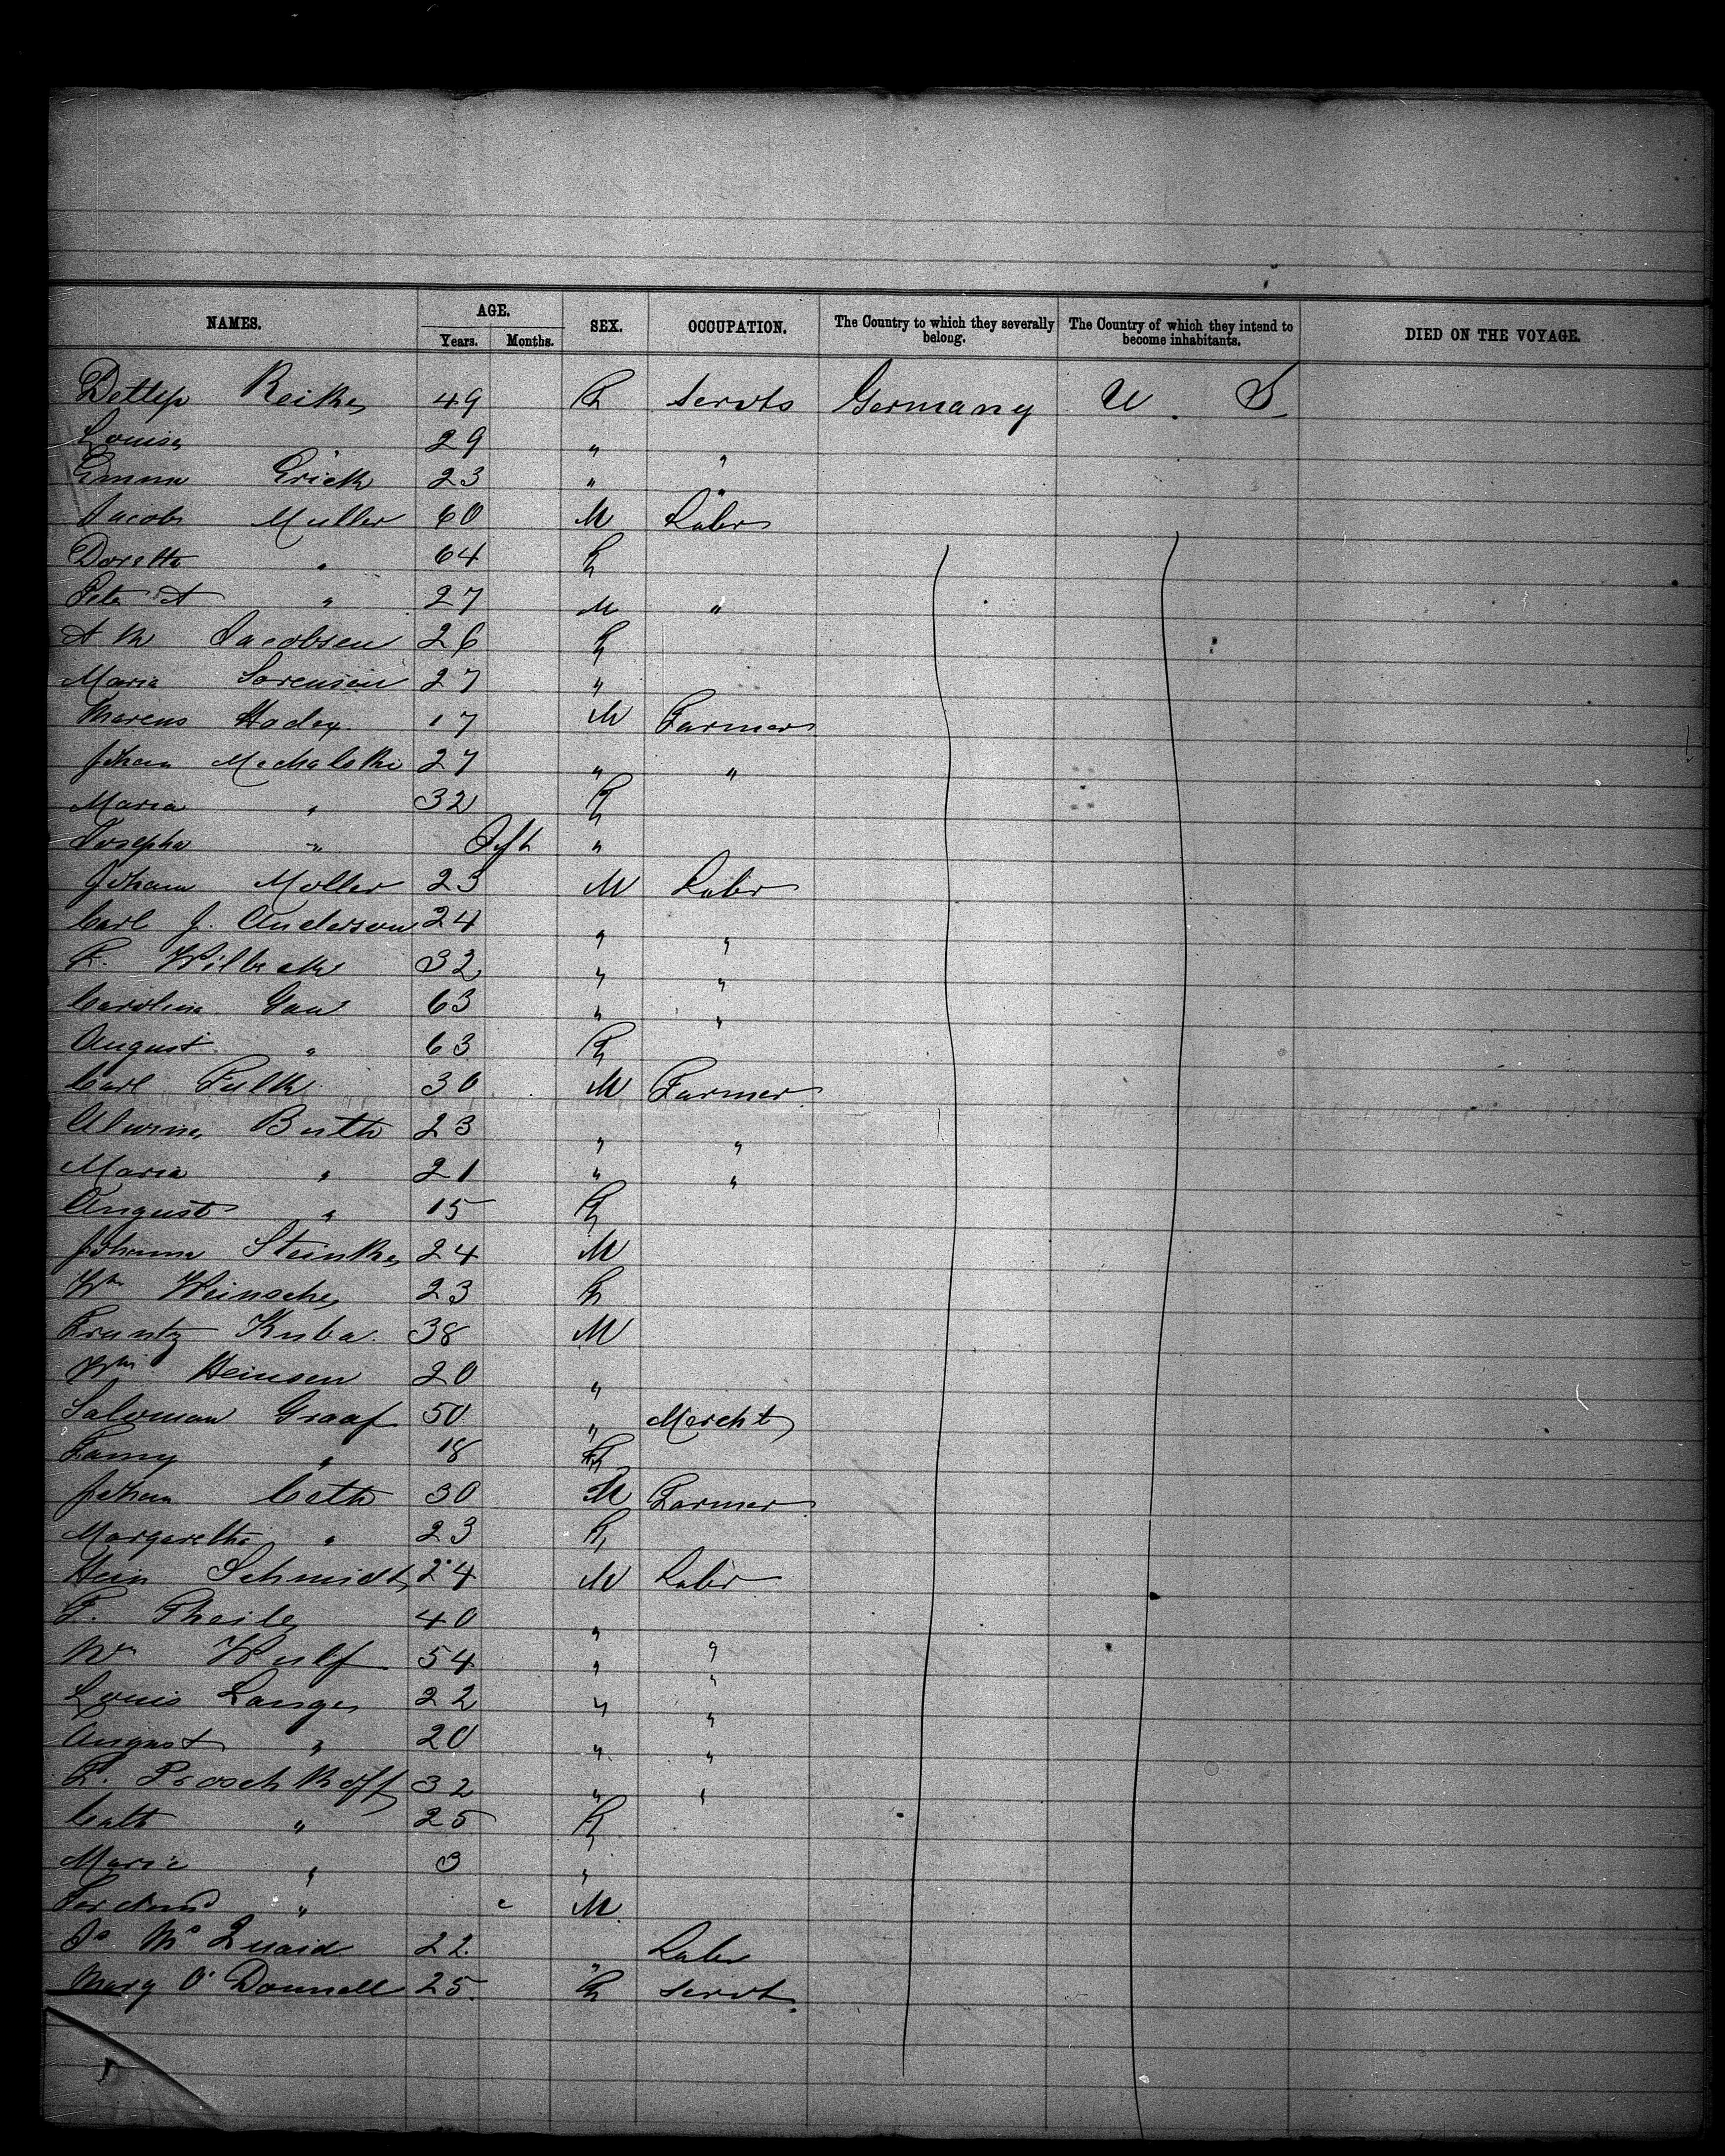 NAMES. AGE. SEX. OCCUPATION. The Country to which they severally belong. The Country of which they intend to become inhabitants. DIED ON THE VOYAGE.
Years. Months.
Reike 49 servts Germany U. S
Louise 29 " "
Emma Erick 23 " "
Jacob Muller 60 M Labr
Doretta " 64 F
Peter A " 27 M "
Jacobsen 26 F
Maria Sorensen 27 "
Marcus 17 M Farmer
Johan Michalski 27 " "
Maria " 32 F
Josepha " Inft "
Johan Moller 23 M Labr
Carl J. Anderson 24 " "
F. Wilbeck 32 " "
Carolina Gau 63 " "
August " 63 F
Carl Falk 30 M Farmer
Buth 23 " "
Maria " 21 " "
August " 15 F
Johanna Steinke 24 M
Wm 23 F
Frantz Kuba 38 M
Wm Heinsen 20 "
Saloman Graaf 50 " Mercht
Fanny " 18 F
Johan 30 M Farmer
Margaretha " 23 F
Hein Schmidt 24 M Labr
F. Theile 40 " "
Wm Wulf 54 " "
Louis Lange 22 " "
August " 20 " "
F. 32 " "
Cath " 25 F
Marie " 3 "
" M
Js McQuaid 22 " Labr
Mary O'Donnell 25 F servt